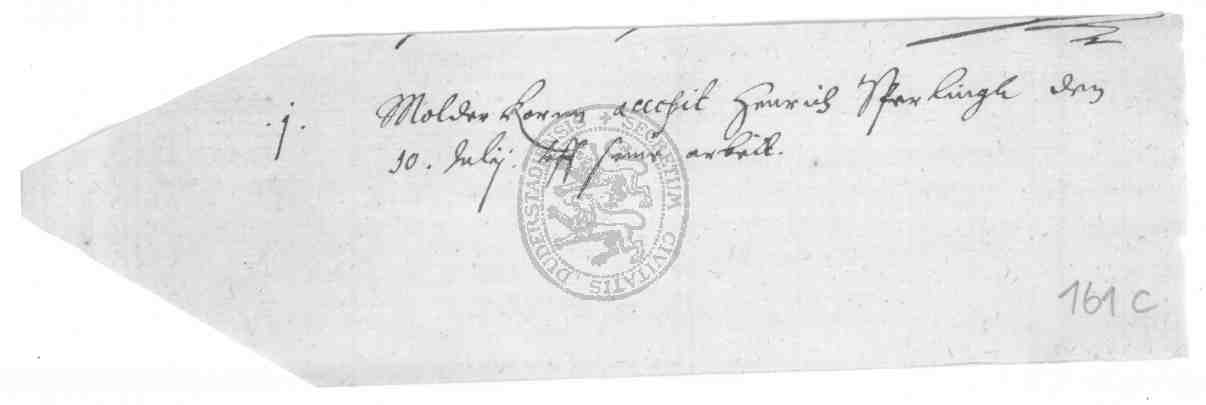 .j. Molder Korenn Henrich Sperlingk den
10. Julij. uff seine arbeit.
SECRETUM CIVITATIS DUDERSTADENSIS
161 c